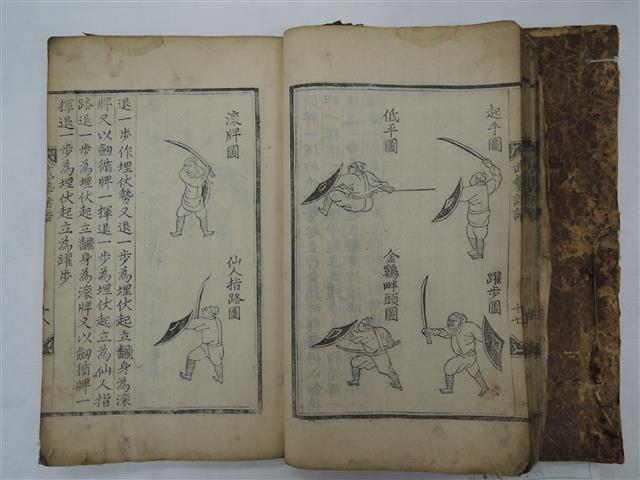 起手圖
低平圖
躍步圖
金鷄畔頭圖
武藝諸譜
十七
滾牌圖
仙人指路圖
退一步作埋伏勢又退一步為埋伏起立飜身為滾
牌又以劒循牌一揮退一步為埋伏起立為仙人指
路退一步為埋伏起立飜身為滾牌又以劒循牌一
揮退一步為埋伏起立為躍步
武藝諸譜
十八